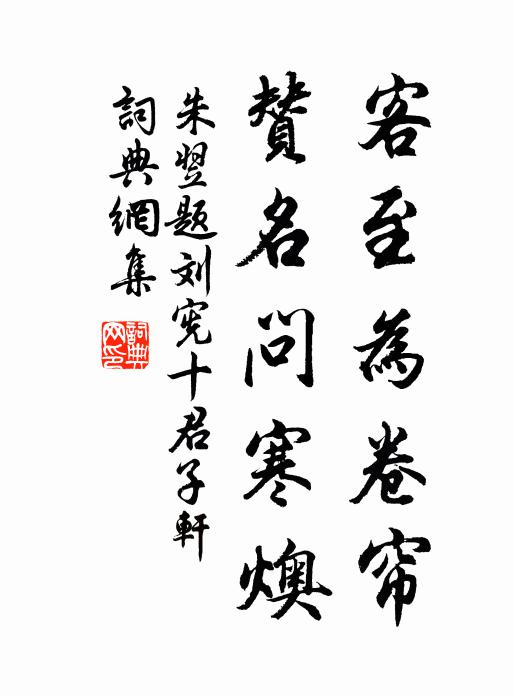 客至為卷帘
賛名問寒燠
朱翌题刘宪十君子軒
詞典網集
詞典網印